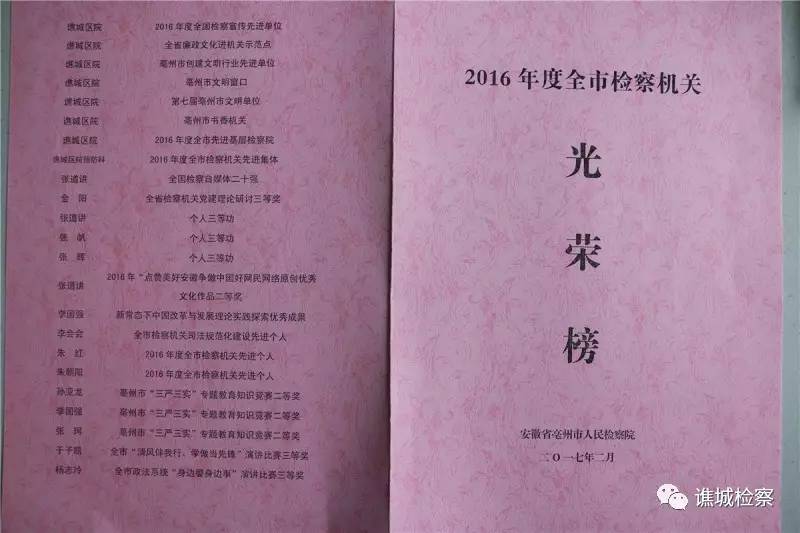 谯城区院 2016年度全国检察宣传先进单位
谯城区院 全省廉政文化进机关示范点
谯城区院 亳州市创建文明行业先进单位
谯城区院 亳州市文明窗口
谯城区院 第七届亳州市文明单位
谯城区院 亳州市书香机关
谯城区院 2016年度全市先进基层检察院
谯城区院预防科 2016年度全市检察机关先进集体
张道讲 全国检察自媒体二十强
金 阳 全省检察机关党建理论研讨三等奖
张道讲 个人三等功
张 帆 个人三等功
张 辉 个人三等功
张道讲 2016年“点赞美好安徽争做中国好网民网络原创优秀
文化作品二等奖
李国强 新常态下中国改革与发展理论实践探索优秀成果
李会会 全市检察机关司法规范化建设先进个人
朱 红 2016年度全市检察机关先进个人
朱朝阳 2016年度全市检察机关先进个人
孙亚龙 亳州市“三严三实”专题教育知识竞赛二等奖
李国强 亳州市“三严三实”专题教育知识竞赛二等奖
张 珂 亳州市“三严三实”专题教育知识竞赛二等奖
于子 全市“清风伴我行、争做当先锋”演讲比赛三等奖
杨志冷 全市政法系统“身边警身边事”演讲比赛三等奖
2016年度全市检察机关
光
荣
榜
安徽省亳州市人民检察院
二〇一七年二月
谯城检察